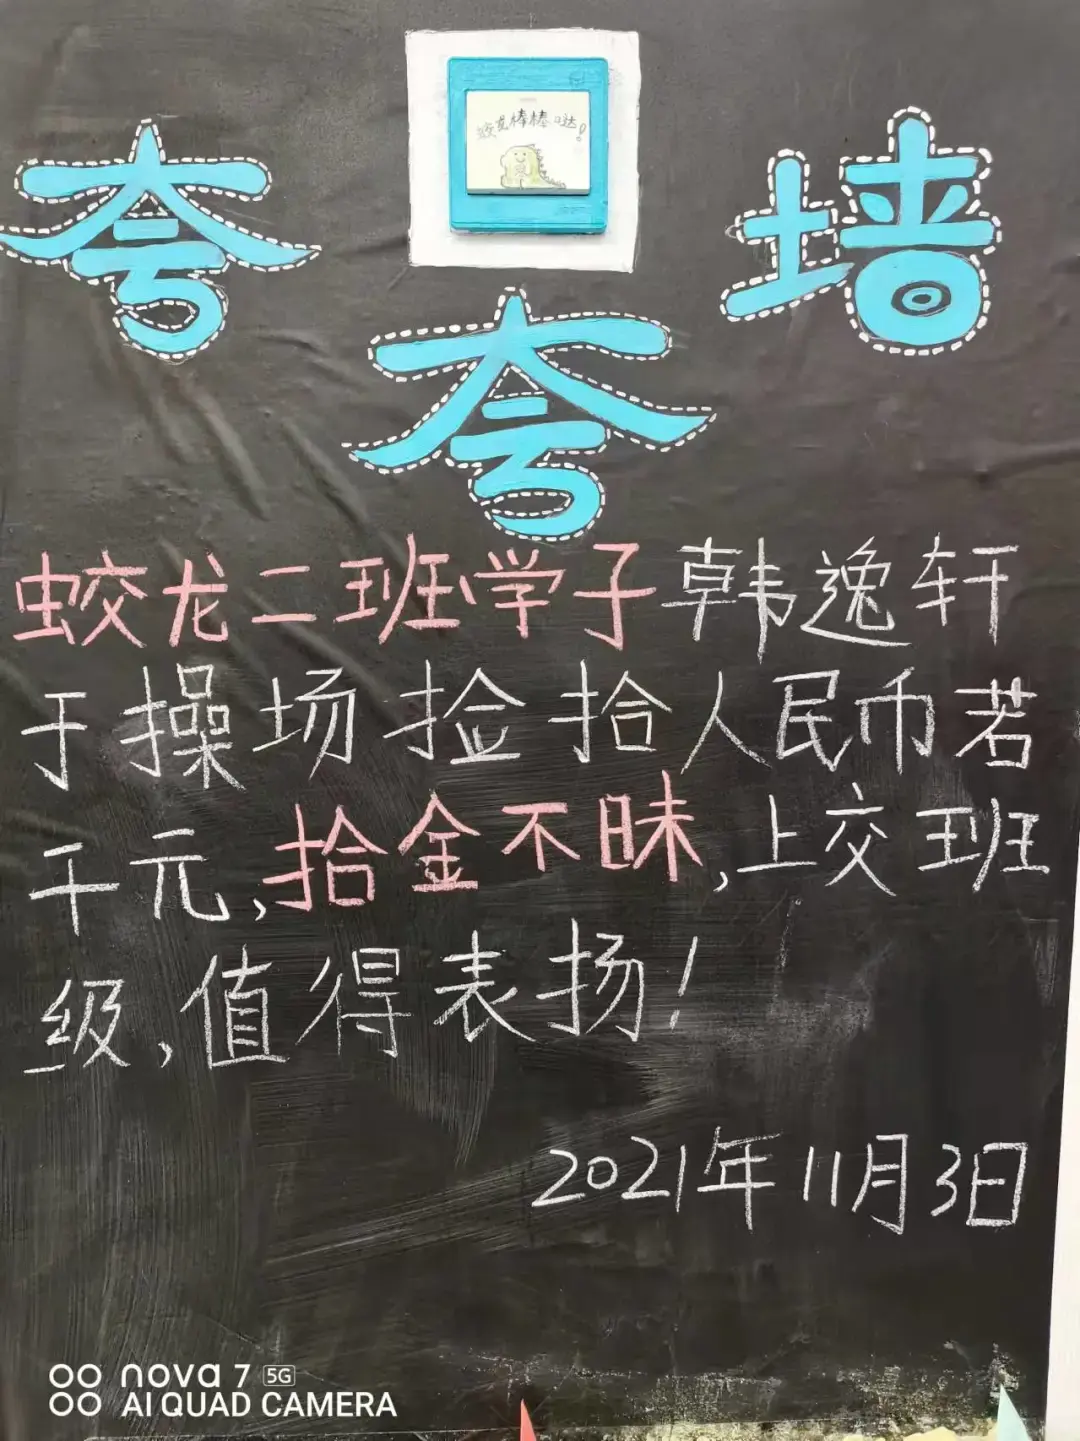 蛟龙棒棒哒!
夸夸墙
蛟龙二班学子韩逸轩
于操场捡拾人民币若
干元,拾金不昧,上交班
级,值得表扬!
2021年11月3日
nova 7 5G
AI QUAD CAMERA